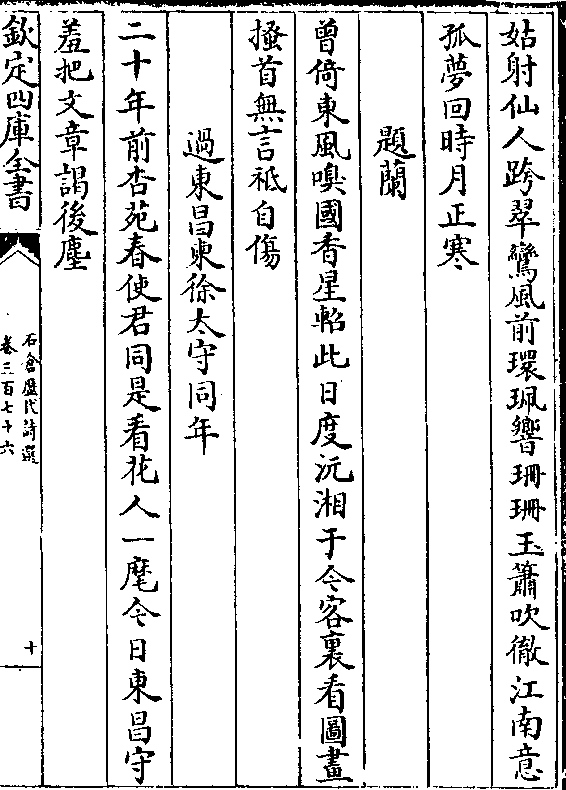 姑射仙人跨翠鸞風前環珮響珊珊玉簫吹徹江南意
孤夢回時月正寒
題蘭
曾倚東風嗅國香星軺此日度沅湘于今客裏看圖畫
搔首無言祗自傷
過東昌柬徐太守同年
二十年前杏苑春使君同是看花人一麾今日東昌守
羞把文章謁後塵
欽定四庫全書
石倉歷代詩選
卷三百七十六
十